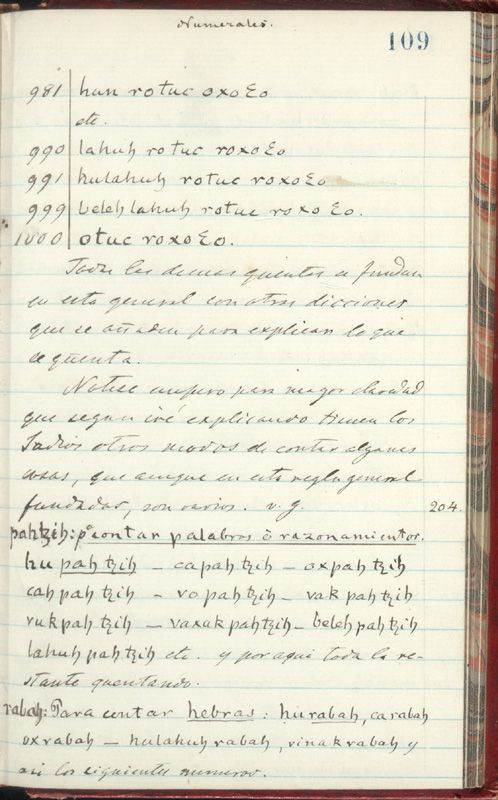 Numerales.
109
981 hun rotuc oxoꜪo
etc.
990 lahuh rotuc roxoꜪo
991 hulahuh rotuc roxoꜪo
999 beleh lahuh rotuc roxoꜪo.
1000 otuc roxoꜪo.
Todas las demas quentas se fundan
en esta general con otras dicciones
que se añaden para explicar lo que
se qüenta.
Notese empero para mayor claridad
que segun iré explicando tienen los
Indios otros modos de contar algunas
cosas, que aunque en esta regla general
fundadas, son varios. v. g. 204.
pahtzih: pa contar palabras ó razonamientos.
hu pah tzih – capah tzih – oxpah tzih
cah pah tzih – vo pah tzih – vak pah tzih
vuk pah tzih – vaxak pah tzih – beleh pah tzih
lahuh pah tzih etc. y por aqui toda la re-
stante quentando.
rabah: Para contar hebras: hurabah, carabah
oxrabah – hulahuh rabah, vinak rabah y
asi los siguientes numeros.